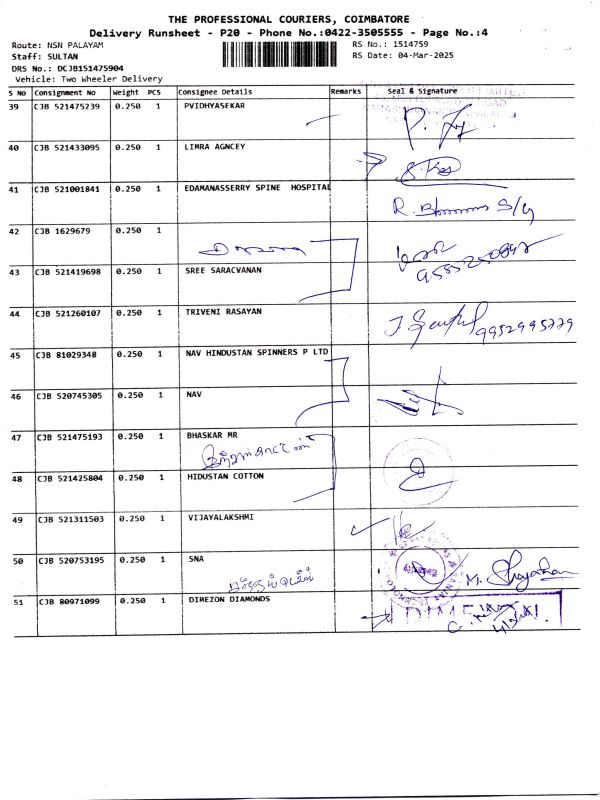 THE PROFESSIONAL COURIERS, COIMBATORE
Delivery Runsheet - P20 - Phone No.:0422-3505555 - Page No.:4
Route: NSN PALAYAM RS No.: 1514759
Staff: SULTAN RS Date: 04-Mar-2025
DRS No.: DCJB151475904
Vehicle: Two Wheeler Delivery
S No Consignment No Weight PCS Consignee Details Remarks Seal & Signature
39 CJB 521475239 0.250 1 PVIDHYASEKAR
40 CJB 521433095 0.250 1 LIMRA AGNCEY
41 CJB 521001841 0.250 1 EDAMANASSERRY SPINE HOSPITAL
42 CJB 1629679 0.250 1
43 CJB 521419698 0.250 1 SREE SARACVANAN
44 CJB 521260107 0.250 1 TRIVENI RASAYAN
9952995779
45 CJB 81029348 0.250 1 NAV HINDUSTAN SPINNERS P LTD
46 CJB 520745305 0.250 1 NAV
47 CJB 521475193 0.250 1 BHASKAR MR
48 CJB 521425804 0.250 1 HIDUSTAN COTTON
49 CJB 521311503 0.250 1 VIJAYALAKSHMI
50 CJB 520753195 0.250 1 SNA
51 CJB 80971099 0.250 1 DIMEZON DIAMONDS